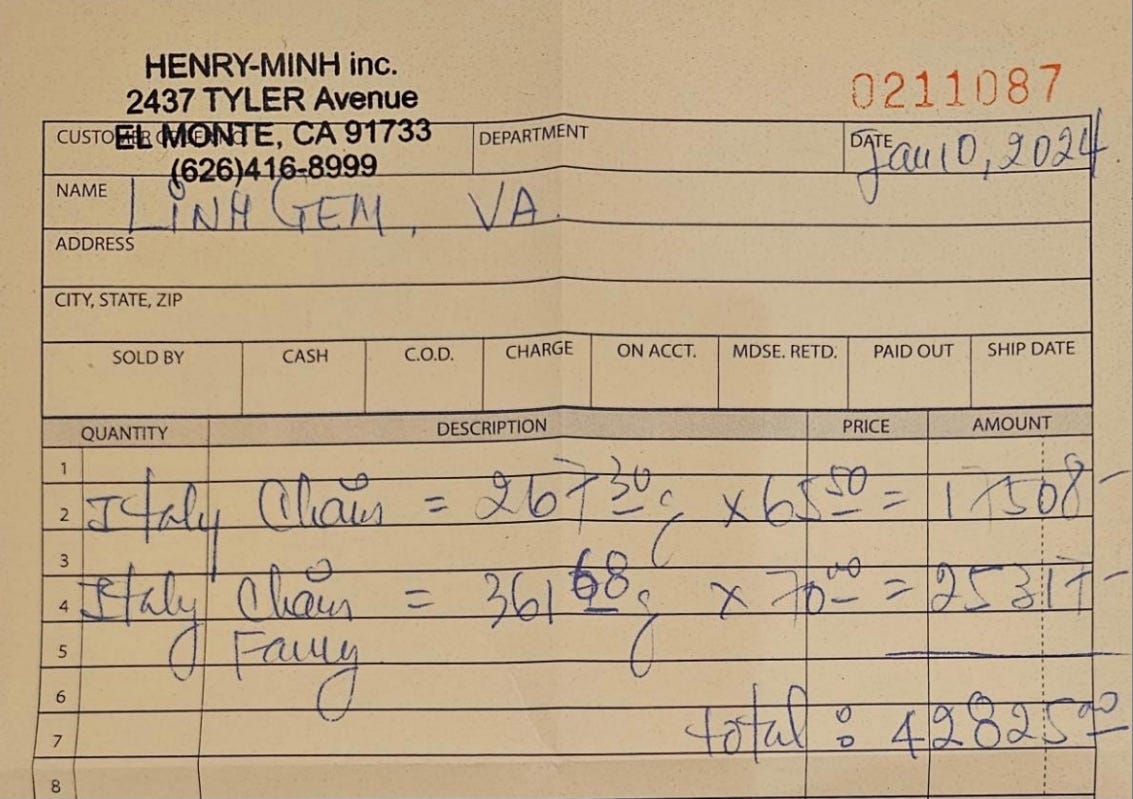 HENRY-MINH inc.
2437 TYLER Avenue
EL MONTE, CA 91733
(626)416-8999
0211087
DEPARTMENT
DATE Jan 10, 2024
NAME LINH GEM, VA.
ADDRESS
CITY, STATE, ZIP
SOLD BY CASH C.O.D. CHARGE ON ACCT. MDSE. RETD. PAID OUT SHIP DATE
QUANTITY DESCRIPTION PRICE AMOUNT
1
2 Italy Chain = 267 30 g x 65 50 = 17508 -
3
4 Italy Chain = 361 68 g x 70 00 = 25317 -
5
6
7 total : 42825 00
8